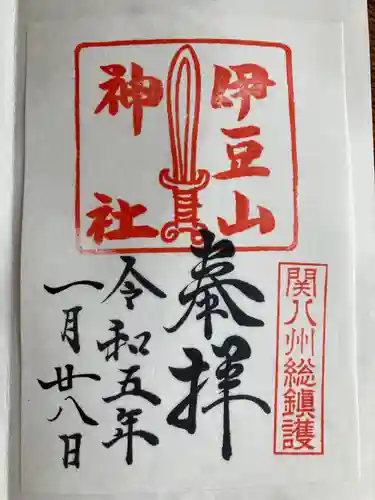 伊豆山
神社
関八州総鎮護
奉拝
令和五年
一月廿八日